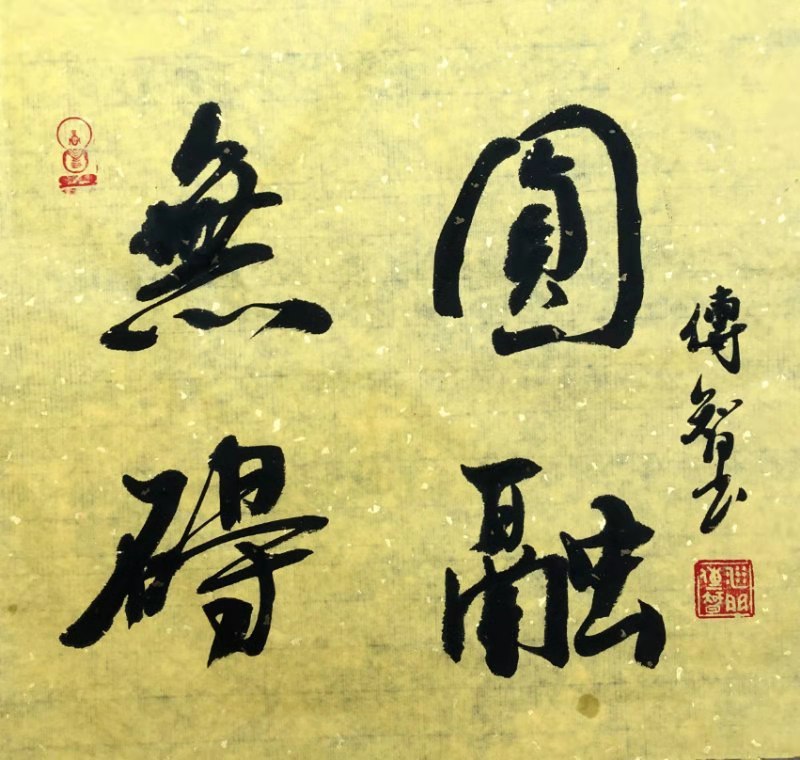 圓融
無礙
傳智书